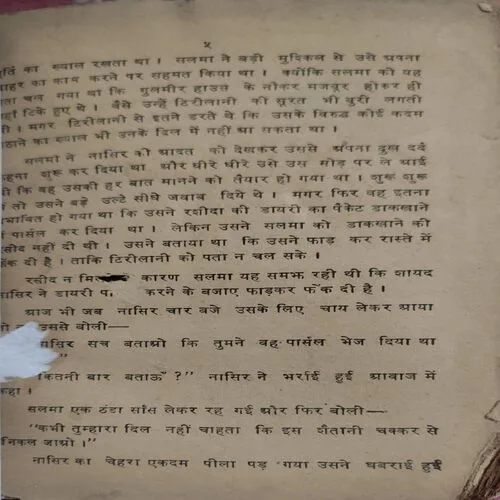 ५
का ख्याल रखता था। सलमा ने बड़ी मुश्किल से उसे अपना
बाहर का काम करने पर सहमत किया था। क्योंकि सलमा को यह
चल गया था कि गुलमीर हाउस के नौकर मजबूर होकर ही
टिके हुए थे। वैसे उन्हें टिरीलानी की सूरत भी बुरी लगती
। मगर टिरीलानी से इतने डरते थे कि उसके विरुद्ध कोई कदम
उठाने का ख्याल भी उनके दिल में नहीं आ सकता था।
सलमा ने नासिर की आदत को देखकर उससे अपना दुख दर्द
कहना शुरू कर दिया था और धीरे धीरे उसे उस मोड़ पर ले आई
थी कि वह उसकी हर बात मानने को तैयार हो गया था। शुरू शुरू
में तो उसने बड़े उल्टे सीधे जवाब दिये थे। मगर फिर वह इतना
प्रभावित हो गया था कि उसने रशीदा की डायरी का पैकेट डाकखाने
पार्सल कर दिया था। लेकिन उसने सलमा को डाकखाने की
रसीद नहीं दी थी। उसने बताया था कि उसने फाड़ कर रास्ते में
फेंक दी है। ताकि टिरीलानी को पता न चल सके।
रसीद न कारण सलमा यह समझ रही थी कि शायद
नासिर ने डायरी करने के बजाए फाड़कर फेंक दी है।
आज भी जब नासिर चार बजे उसके लिए चाय लेकर आया
उससे बोली—
नासिर सच बताओ कि तुमने वह पार्सल भेज दिया था
"
कितनी बार बताऊँ?" नासिर ने भर्राई हुई आवाज में
कहा।
सलमा एक ठंडा साँस लेकर रह गई और फिर बोली—
"कभी तुम्हारा दिल नहीं चाहता कि इस शैतानी चक्कर से
निकल जाओ।"
नासिर का चेहरा एकदम पीला पड़ गया उसने घबराई हुई